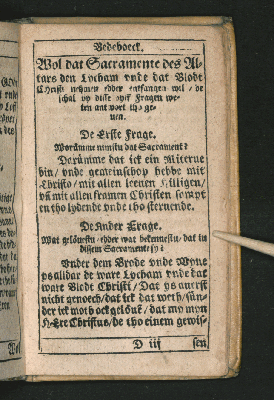 Bedeboeck.
Wol dat Sacramente des Al-
tars den Lycham vnde dat Blodt
Christi nehmen edder entfangen wil / de
schal vp disse vyff Fragen we-
ten antwort tho ge-
uen.
De Erste Frage.
Worümme nimstu dat Sacrament?
Darümme dat ick ein Miterue
bin / vnde gemeinschop hebbe mit
Christo / mit allen leenen Hilligen /
vñ mit allen framen Christen sampt
en tho lydende vnde tho steruende.
De Ander Frage.
Wat gelöuestu / edder wat bekennestu / dat in
dissem Sacramente sy?
Vnder dem Brode vnde Wyne
ys alldar de ware Lycham vnde dat
ware Blodt Christi / Dat ys auerst
nicht genoech / dat ick dat weth / sün-
der ick moth ock gelöuē / dat my myn
HEre Christus / de tho einem gewis-
D iij sen